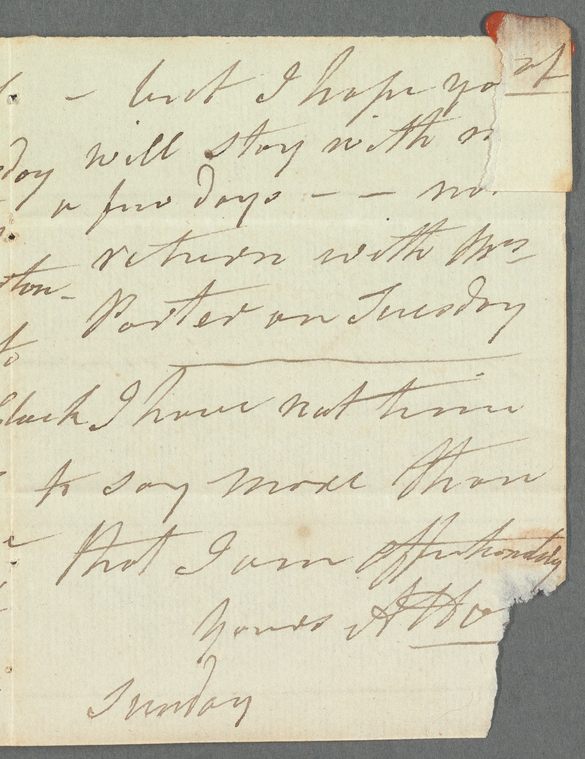 – but I hope yo at
day will stay with
a few days – – no
return with Mrs
ton- Porter on Tuesday
to
black I have not time
to say more than
that I am affectionately
Yours AHo
Sunday